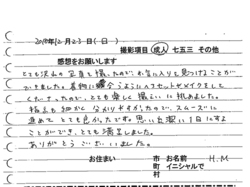 2018年12月23日(日)
撮影項目 成人 七五三 その他
感想をお願いします
とても沢山の写真を撮ったので、お気に入りを見つけることが
できました。着物に合うようにヘアセットやメイクをして
くださったので、とても楽しく撮影に挑めました。
指示も細かく分かりやすかったので、スムーズに
進めてとても良かったです。思い出深い1日にする
ことができ、とても満足しました。
ありがとうございました。
お住まい 市 町 村 お名前 イニシャルで H.M